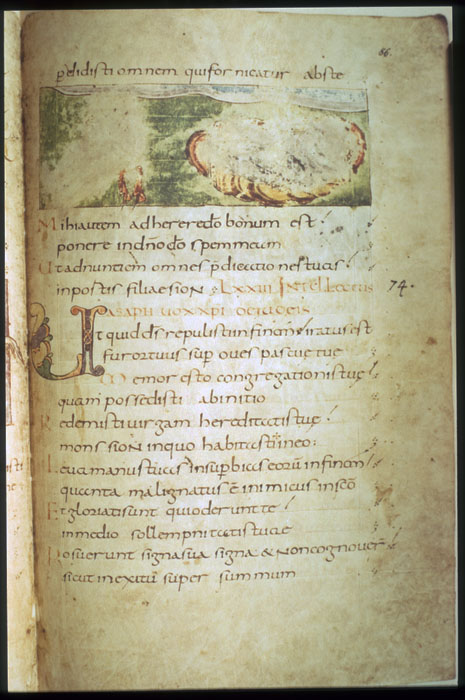 86.
p̄didisti omnem qui fornicatur abste
Mihi autem adherere dō bonum est!
ponere in dn̄o dō spem meum
Ut adnuntiem omnes p̄dicationes tuas!
in portis filiae sion LXXIII Intellectus
74.
ASAPH UOX XPI
Ut quid ds̄ repulisti in finem iratus est
furor tuus sup oves pascue tue
Memor esto congregationis tue!
quam possedisti abinitio
Redemisti virgam hereditatis tue!
mons sion inquo habitasti in eo:
Leva manus tuas in superbias eorū in finem!
quanta malignatus ē inimicus in sc̄o
Et gloriati sunt qui oderunt te!
in medio sollempnitatis tuae
Posuerunt signa sua signa & non cognover̄
sicut in exitu super summum